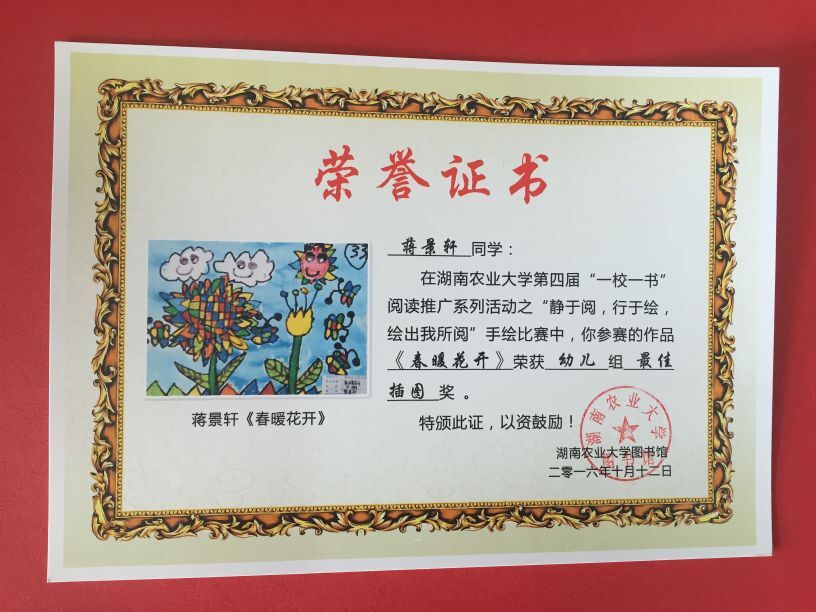 荣誉证书
33
蒋景轩 同学：
在湖南农业大学第四届“一校一书”
阅读推广系列活动之“静于阅，行于绘，
绘出我所阅”手绘比赛中，你参赛的作品
《春暖花开》荣获 幼儿 组 最佳
插图 奖。
蒋景轩《春暖花开》
特颁此证，以资鼓励！
湖南农业大学图书馆
二零一六年十月十二日
湖南农业大学
图书馆